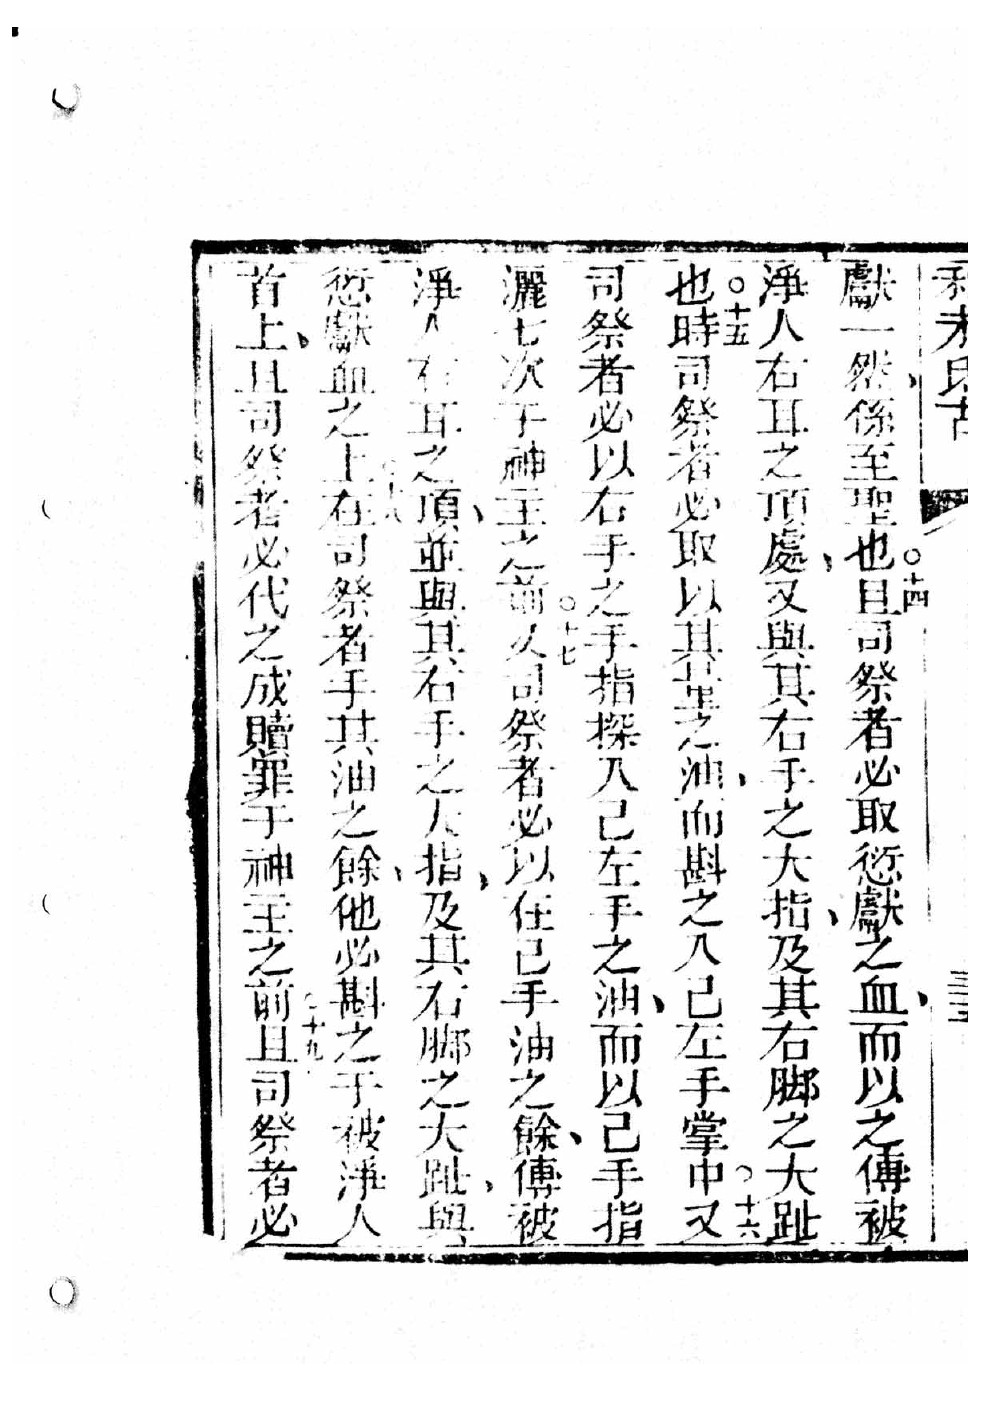 利未氏古
三三
獻一然係至聖也○十四且司祭者必取愆獻之血而以之傅被
淨人右耳之頂處又與其右手之大指及其右脚之大趾
○十五也時司祭者必取以其𦉥之油而斟之入己左手掌中○十六又
司祭者必以右手之手指探入己左手之油而以己手指
灑七次于神主之前○十七又司祭者必以在己手油之餘傅被
淨人右耳之頂並與其右手之大指及其右脚之大趾與
愆獻血之上○十八在司祭者手其油之餘他必斟之于被淨人
首上且司祭者必代之成贖罪于神主之前○十九且司祭者必